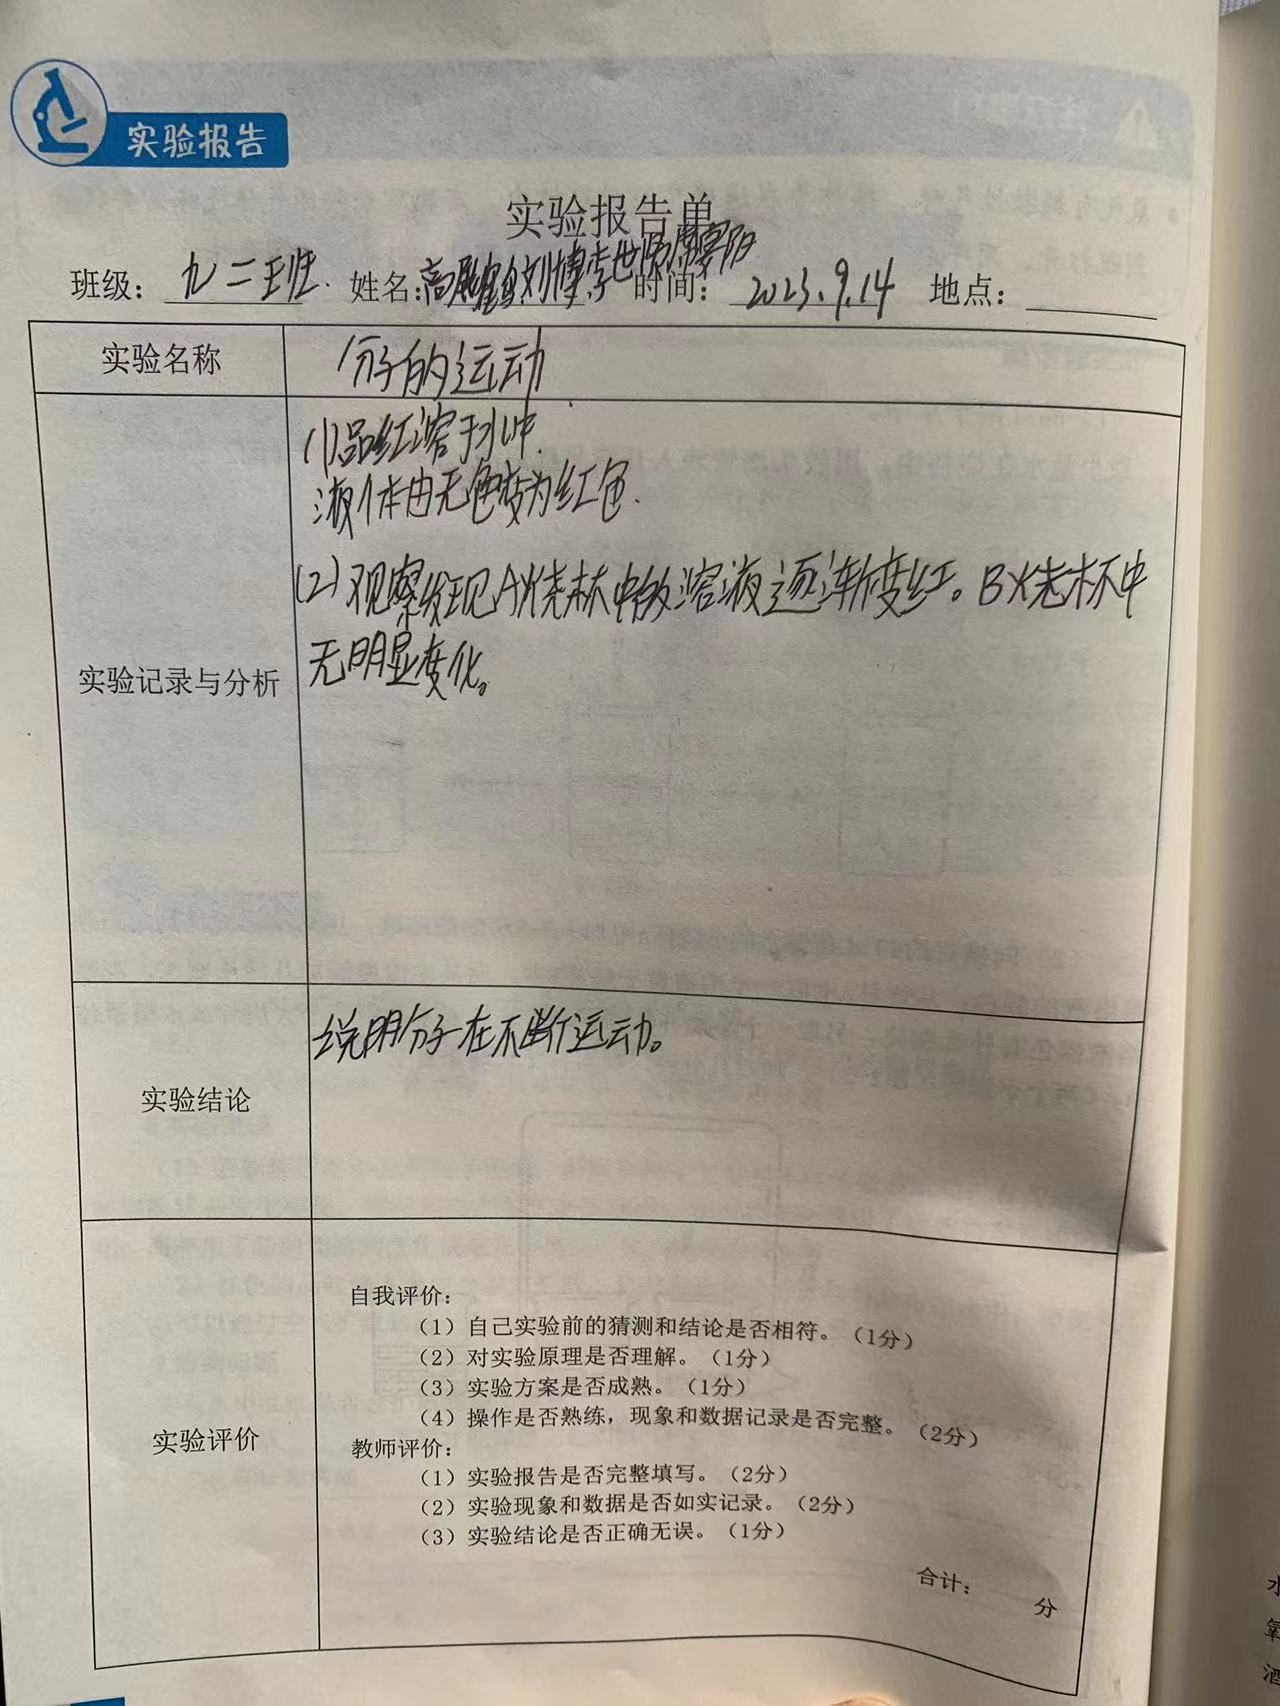 实验报告
实验报告单
班级：九二班. 姓名：高 刘博李世 时间：2023.9.14 地点：
实验名称 分子的运动
(1)品红溶于水中.
液体由无色变为红色.
(2)观察发现A烧杯中的溶液逐渐变红。B烧杯中
无明显变化。
实验记录与分析
说明分子在不断运动。
实验结论
自我评价：
（1）自己实验前的猜测和结论是否相符。（1分）
（2）对实验原理是否理解。（1分）
（3）实验方案是否成熟。（1分）
（4）操作是否熟练，现象和数据记录是否完整。（2分）
实验评价
教师评价：
（1）实验报告是否完整填写。（2分）
（2）实验现象和数据是否如实记录。（2分）
（3）实验结论是否正确无误。（1分）
合计： 分
水
氧
酒